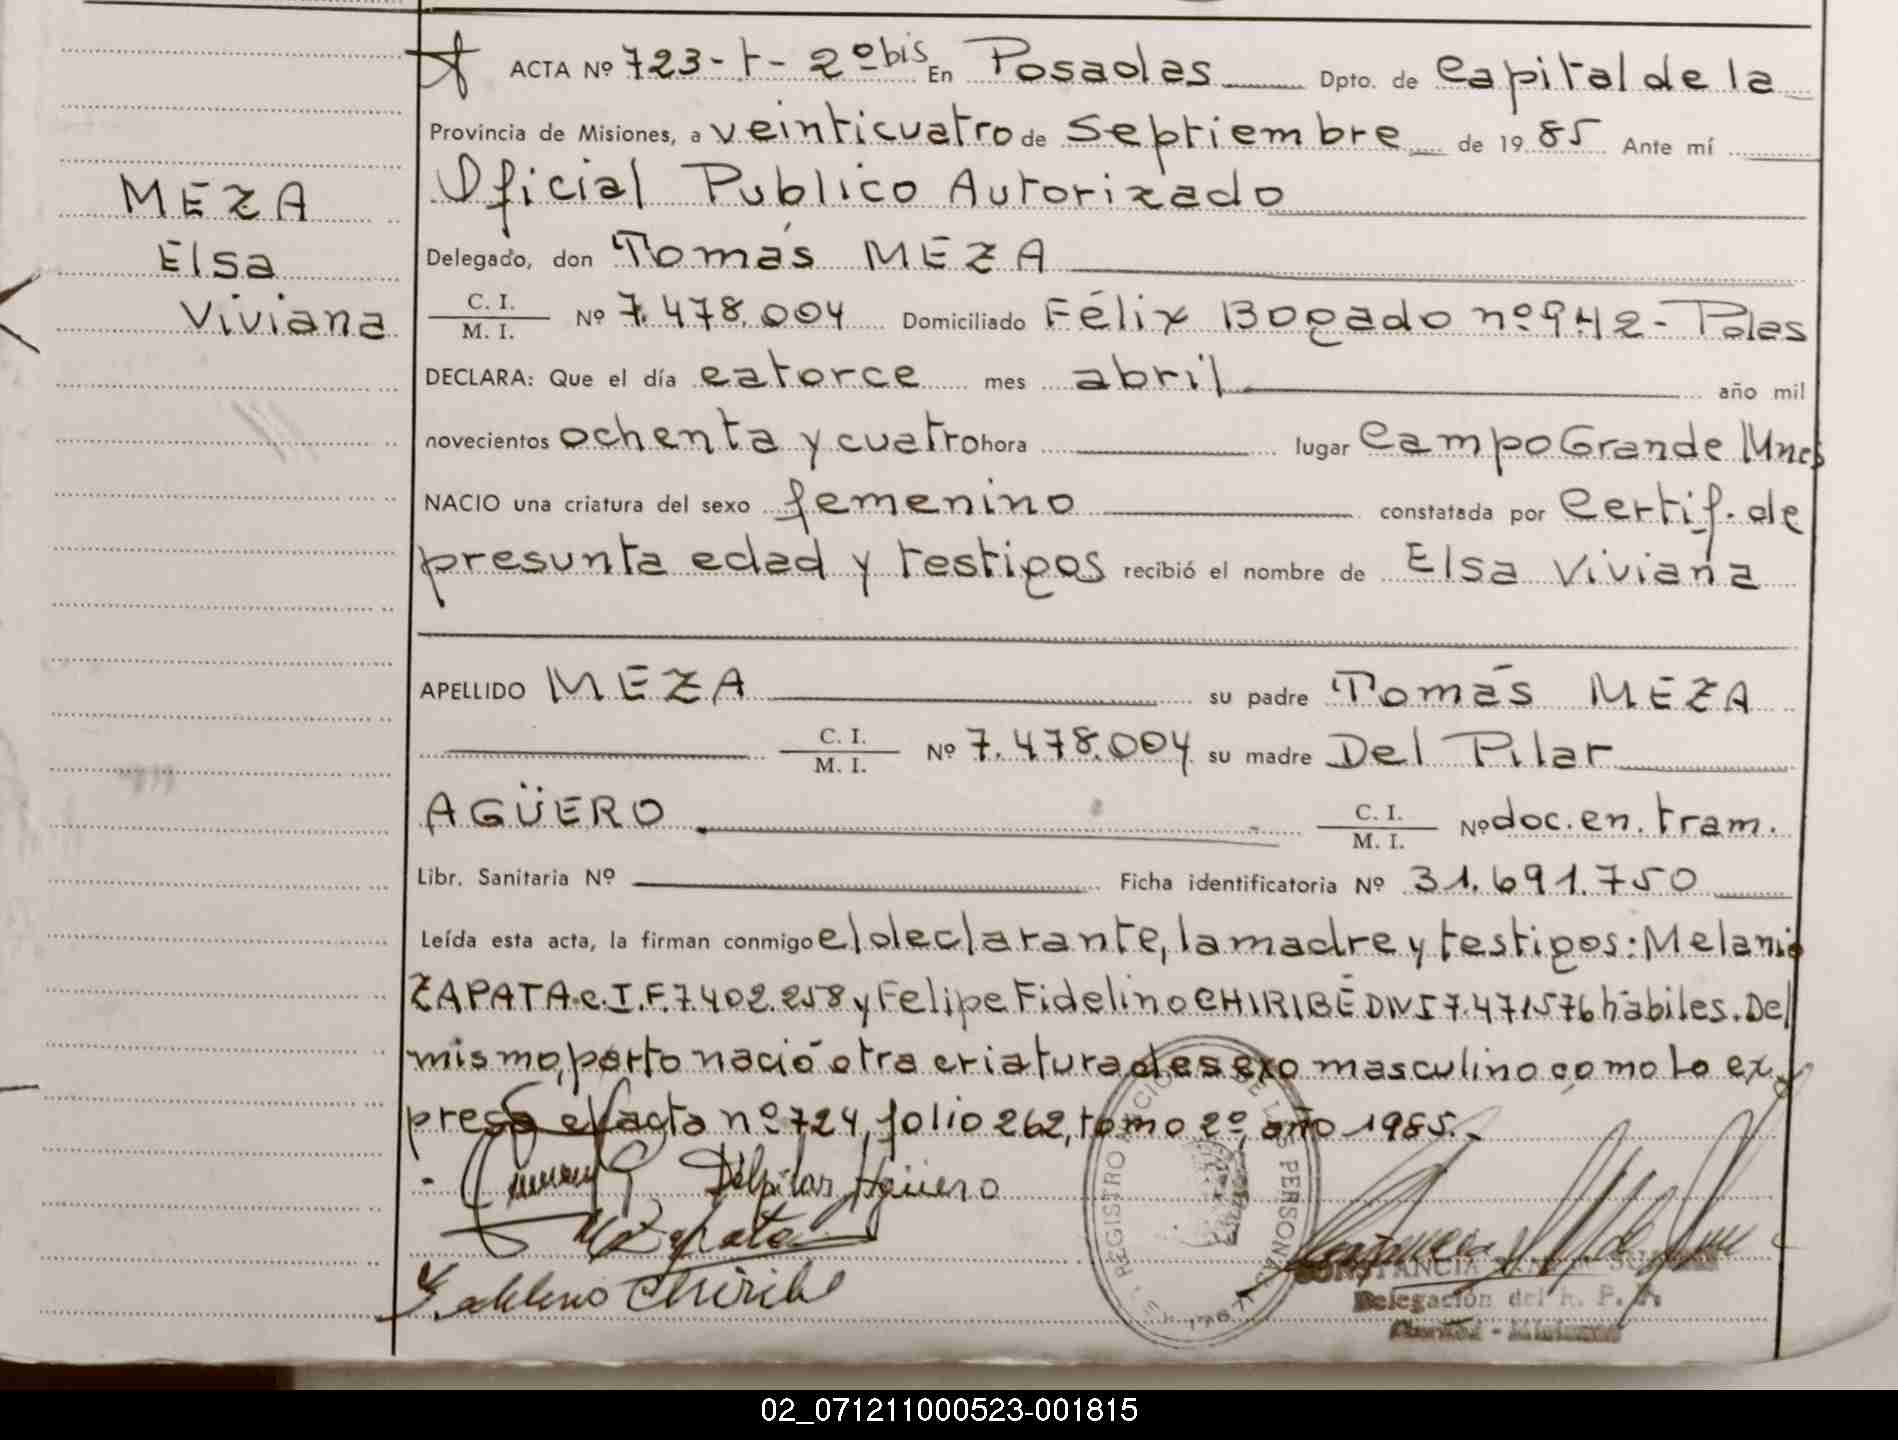 ACTA Nº 723-t-2º bis En Posadas Dpto. de Capital de la
Provincia de Misiones, a veinticuatro de Septiembre de 1985 Ante mí
Oficial Publico Autorizado
MEZA
Delegado, don Tomás MEZA
Elsa
C. I.
M. I. Nº 7.478.004 Domiciliado Félix Bogado nº 942 - Pdas
Viviana
DECLARA: Que el día catorce mes abril año mil
novecientos ochenta y cuatro hora lugar Campo Grande Mnes
NACIO una criatura del sexo femenino constatada por Certif. de
presunta edad y testigos recibió el nombre de Elsa Viviana
APELLIDO MEZA su padre Tomás MEZA
C. I.
M. I. Nº 7.478.004 su madre Del Pilar
AGÜERO C. I.
M. I. Nº doc. en. tram.
Libr. Sanitaria Nº Ficha identificatoria Nº 31.691.750
Leída esta acta, la firman conmigo el declarante, la madre y testigos: Melanio
ZAPATA C.I.F. 7.402.258 y Felipe Fidelino CHIRIBÉ DNI 7.471576 hábiles. Del
mismo, parto nació otra criatura de sexo masculino como lo ex
presa el acta nº 724, folio 262, tomo 2º, año 1985.
Del pilar Agüero
M Zapata
Fidelino Chiribe
REGISTRO DE LAS PERSONAS
CONSTANCIA
Delegación del R. P. P.
02_071211000523-001815